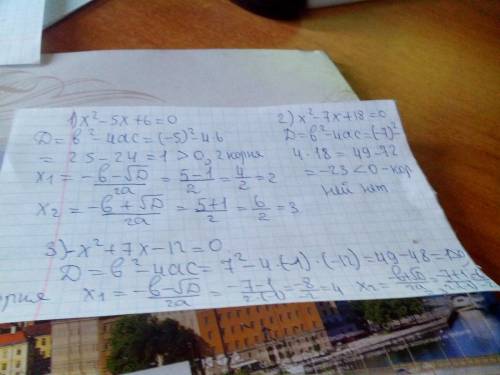 1) x² - 5x + 6 = 0
D = b² - 4ac = (-5)² - 4·6
= 25 - 24 = 1 > 0, 2 корня
x₁ = (-b - √D)/2a = (5 - 1)/2 = 4/2 = 2
x₂ = (-b + √D)/2a = (5 + 1)/2 = 6/2 = 3
2) x² - 7x + 18 = 0
D = b² - 4ac = (-7)²
4 · 18 = 49 - 72
= -23 < 0 - кор
ней нет
3) -x² + 7x - 12 = 0
D = b² - 4ac = 7² - 4·(-1)·(-12) = 49 - 48 = 1>0
корня x₁ = (-b - √D)/2a = = -8/ = 4 x₂ =